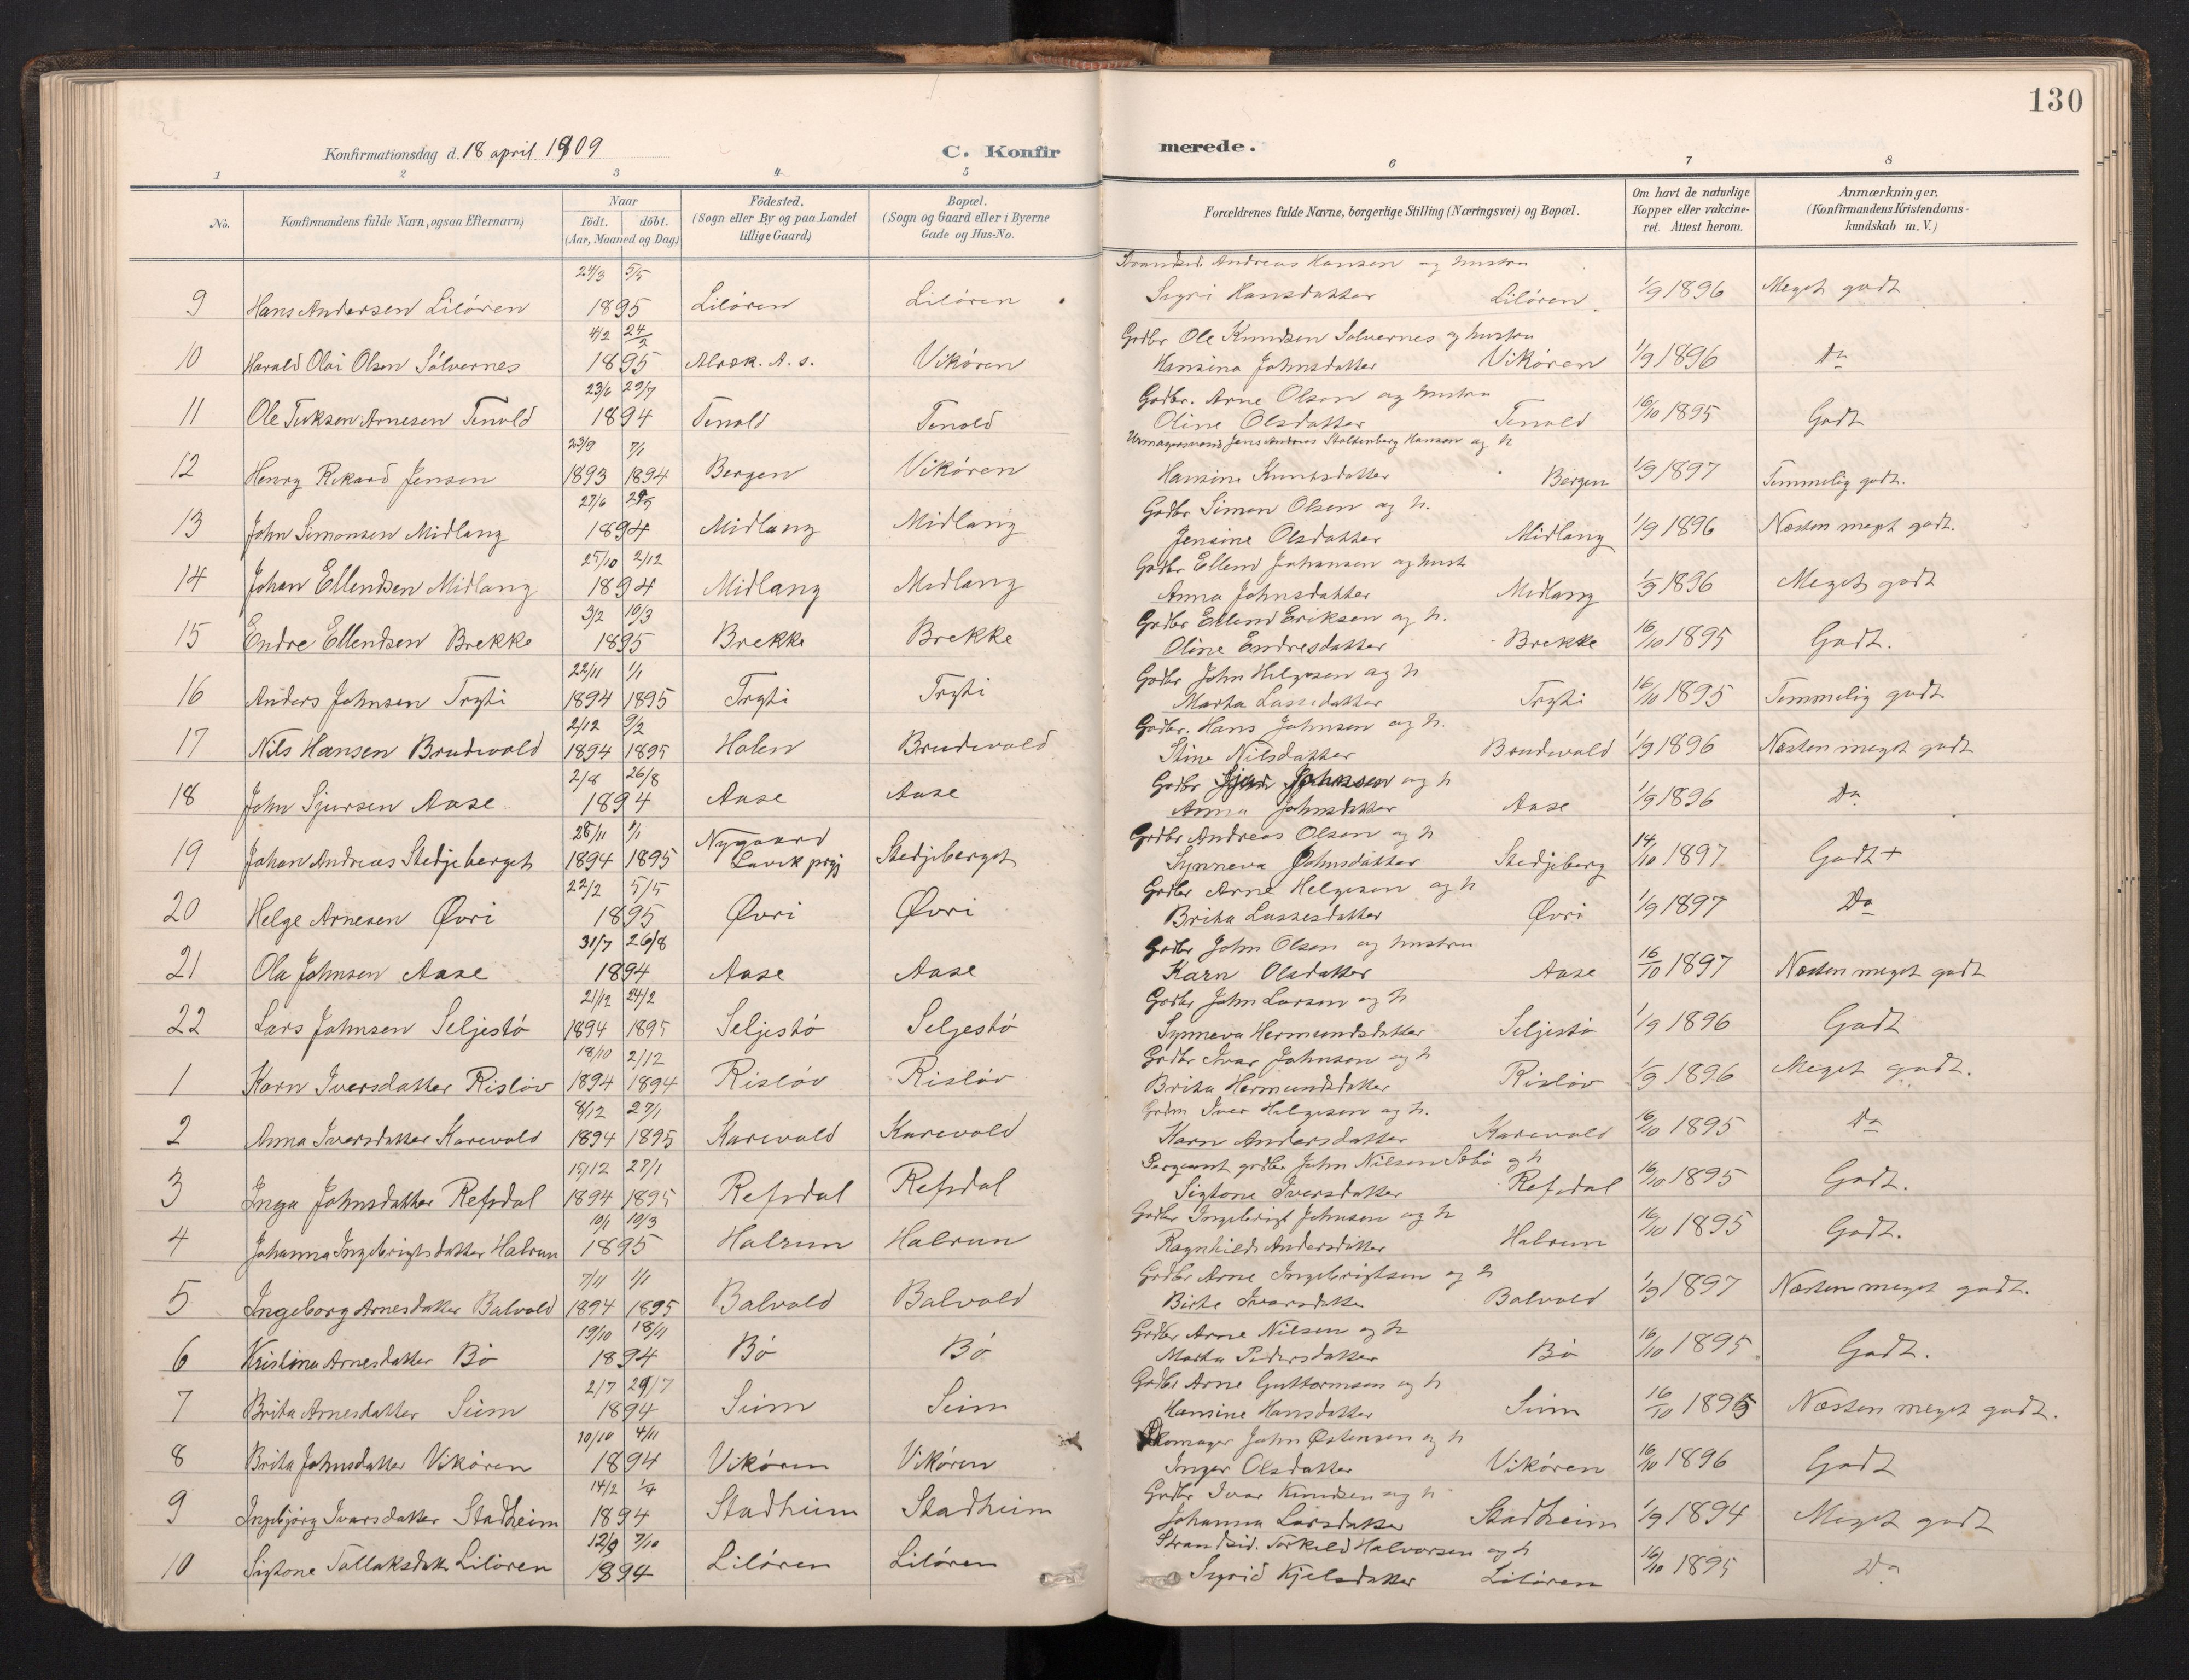 130
Konfirmationsdag d. 18 april 1909
C. Konfirmerede.
1 2 3 4 5 6 7 8
No.
Konfirmandens fulde Navn, ogsaa Efternavn)
Naar
födt. döbt.
(Aar, Maaned og Dag)
Födested.
(Sogn eller By og paa Landet
tillige Gaard)
Bopæl.
(Sogn og Gaard eller i Byerne
Gade og Hus-No.
Forældrenes fulde Navne, borgerlige Stilling (Næringsvei) og Bopæl.
Om havt de naturlige
Kopper eller vakcine-
ret. Attest herom.
Anmærkninger,
(Konfirmandens Kristendoms-
kundskab m. V.)
24/3 5/5 Strandsid. Andreas Hansen og hustru
9 Hans Andersen Lilören 1895 Lilören Lilören Sigri Hansdatter Lilören 1/9 1896 Meget godt
4/2 24/2 Grdbr Ole Knudsen Solvernes og hustru
10 Harald Olai Olsen Sölvernes 1895 Vikören Hansina Johnsdatter Vikören 1/9 1896 Do
23/6 29/7 Grdbr. Arne Olsen og hustru
11 Ole Arnesen Tenold 1894 Tenold Tenold Oline Olsdatter Tenold 16/10 1895 Godt
23/9 7/1 Jens Andreas Stoltenberg Hansen og h
12 Henry Rikard Jensen 1893 1894 Bergen Vikören Hansine Bergen 1/9 1897 Temmelig godt.
27/6 29/7 Grdbr Simon Olsen og h.
13 John Simonsen Midlang 1894 Midlang Midlang Jensine Olsdatter Midlang 1/9 1896 Næsten meget godt.
25/10 2/12 Grdbr Ellend Johansen og hust
14 Johan Ellendsen Midlang 1894 Midlang Midlang Anna Johnsdatter Midlang 1/9 1896 Meget godt
3/2 10/3 Grdbr Ellend Eriksen og h.
15 Endre Ellendsen Brekke 1895 Brekke Brekke Oline Endresdatter Brekke 16/10 1895 Godt.
22/11 1/1 Grdbr John Helgesen og h
16 Anders Johnsen Tryti 1894 1895 Tryti Tryti Marta Lassedatter Tryti 16/10 1895 Temmelig godt
2/12 9/2 Grdbr. Hans Johnsen og h.
17 Nils Hansen Brudevold 1894 1895 Holen Brudevold Stine Nilsdatter Brudevold 1/9 1896 Næsten meget godt
2/8 26/8 Grdbr Sjur Johnsen og h
18 John Sjursen Aase 1894 Aase Aase Anna Johnsdatter Aase 1/9 1896 Do
28/11 1/1 Nygaard Grdbr Andreas Olsen og h
19 Johan Andreas Stedjeberget 1894 1895 Lavik prgj Stedjeberget Synneva Johnsdatter Stedjeberg 14/10 1897 Godt +
22/2 5/5 Grdbr Arne Helgesen og h
20 Helge Arnesen Øvri 1895 Øvri Øvri Brita Lassesdatter Øvri 1/9 1897 Do
31/7 26/8 Grdbr John Olsen og hustru
21 Ola Johnsen Aase 1894 Aase Aase Karn Olsdatter Aase 16/10 1897 Næsten meget godt
21/12 24/2 Grdbr John Larsen og h
22 Lars Johnsen Seljestö 1894 1895 Seljestö Seljestö Synneva Hermundsdatter Seljestö 1/9 1896 Godt
18/10 2/12 Grdbr Ivar Johnson og h
1 Karn Iversdatter Rislöv 1894 1894 Rislöv Rislöv Brita Hermundsdatter Rislöv 1/9 1896 Meget godt.
8/12 27/1 Grdm Iver Helgesen og h.
2 Anna Iversdatter Karevold 1894 1895 Karevold Karevold Karn Andersdatter Karevold 16/10 1895 Do
15/12 27/1 Sergeant grdbr John Nilsen Sebö og h
3 Inga Johnsdatter Refsdal 1894 1895 Refsdal Refsdal Sigtone Iversdatter Refsdal 16/10 1895 Godt.
10/1 10/3 Grdbr Ingebrigt Johnsen og h
4 Johanna Ingebrigtsdatter Halrun 1895 Halrun Halrun Ragnhilde Andersdatter Halrun 16/10 1895 Godt.
7/11 1/1 Grdbr Arne Ingebrigtsen og h
5 Ingeborg Arnesdatter Balvold 1894 1895 Balvold Balvold Birte Ivarsdatter Balvold 1/9 1897 Næsten meget godt.
19/10 18/11 Grdbr Arne Nilsen og h
6 Kristina Arnesdatter Bö 1894 Bö Bö Marta Pedersdatter Bö 16/10 1895 Godt.
2/7 29/7 Grdbr Arne Guttormsen og h
7 Brita Arnesdatter Seim 1894 Seim Seim Hansine Hansdatter Seim 16/10 1895 Næsten meget godt.
20/10 4/11 Skomager John Østensen og h
8 Brita Johnsdatter Vikören 1894 Vikören Vikören Inger Olsdatter Vikören 16/10 1896 Godt
14/2 1/4 Grdbr Ivar Knudsen og h
9 Ingebjörg Ivarsdatter Stadheim 1894 Stadheim Stadheim Johanna Larsdatter Stadheim 1/9 1894 Meget godt
12/9 7/10 Strandsid. Torkild Halvorsen og h
10 Sigtone Tollaksdatr Lilören 1894 Lilören Lilören Sigrid Kjelsdatter Lilören 16/10 1895 Do